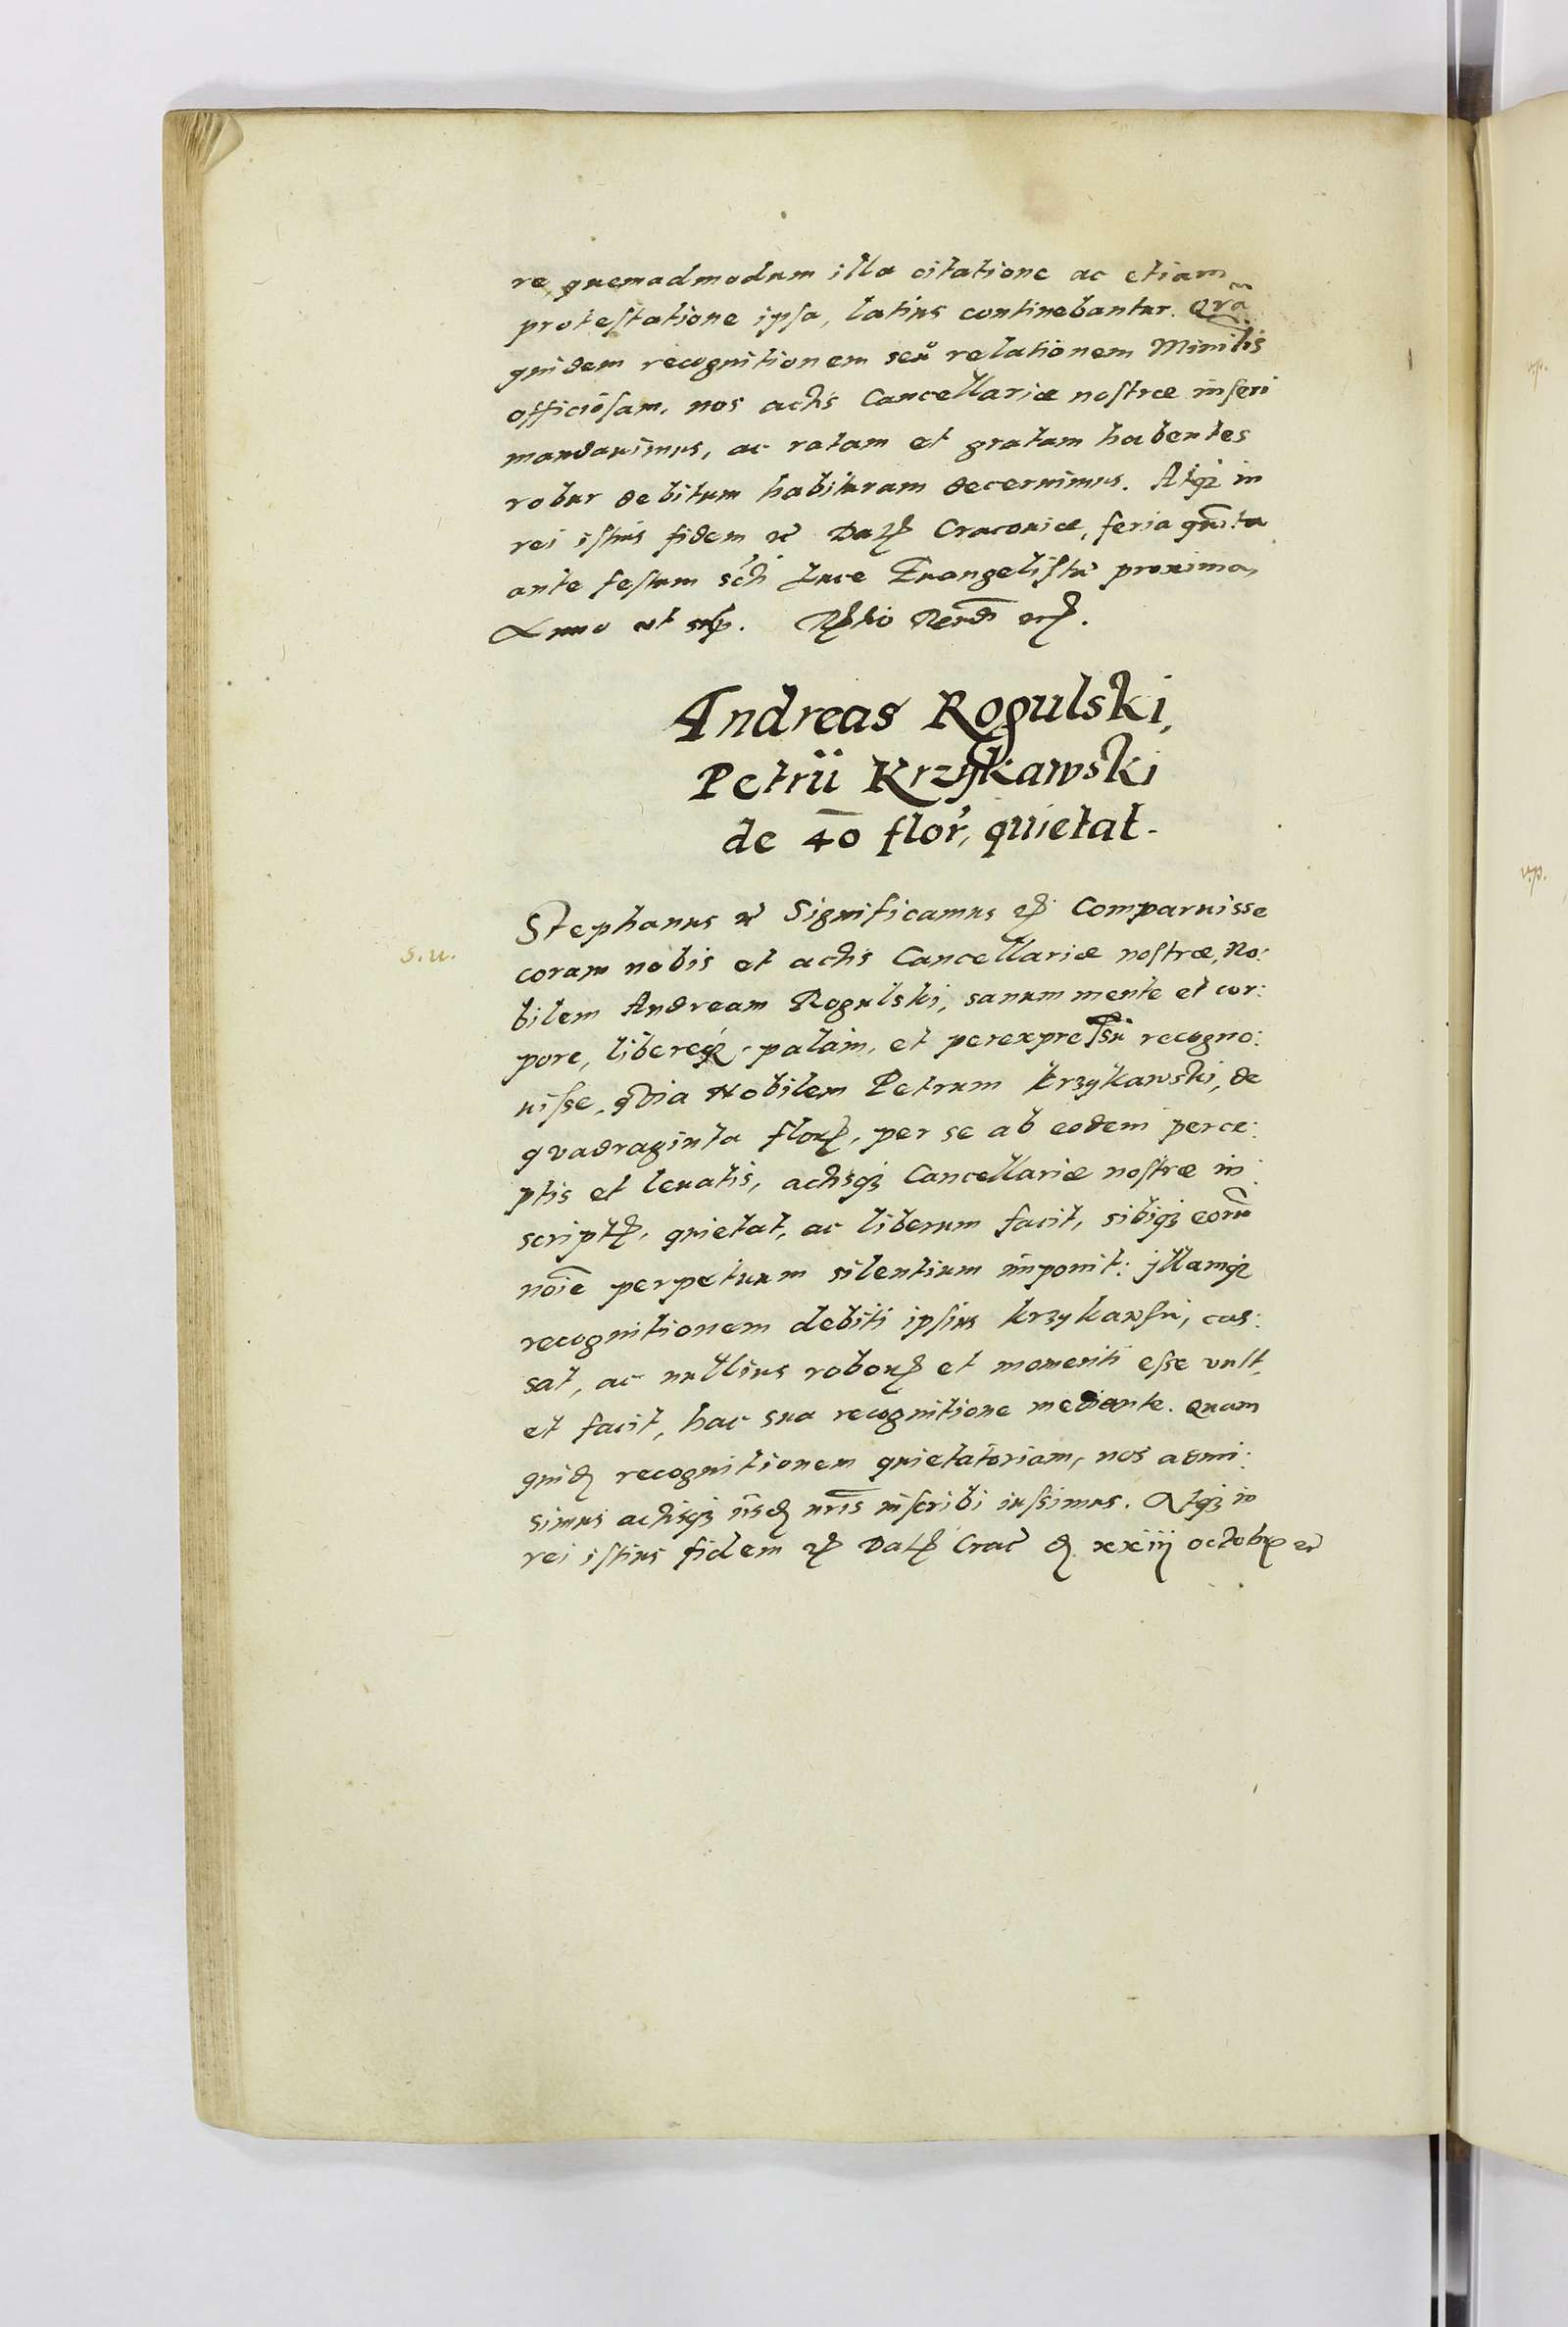 re, quemadmodum illa citatione ac etiam
protestatione ipsa, latius continebantur. Qrã
quidem recognitionem seu relationem Minilis
officiosam, nos actis Cancellariæ nostræ inseri
mandauimus, ac ratam et gratam habentes
robur debitum habituram decernimus. Atqꝫ in
rei istius fidem etc Datꝭ Cracouiæ, feria quīta
ante festum scti Luce Euangelistæ proxima,
Anno ut sup. Rela
Andreas Rogulski,
Petrū Krzykawski
de 40 flor, quietat.
Stephanus etc Significamus etc Comparuisse
s.u.
coram nobis et actis Cancellariæ nostræ, No:
bilem Andream Rogulski, sanum mente et cor:
pore, libereqꝫ palam, et per expressū recogno:
uisse, quia Nobilem Petrum Krzykawski, de
quadraginta florꝭ, per se ab eodem perce:
ptis et leuatis, actisqꝫ Cancellariæ nostræ in:
scriptꝭ, quietat, ac liberum facit, sibiqꝫ eorū
noīe perpetuum silentium imponit: jllamqꝫ
recognitionem debiti ipsius Krzykawski, cas:
sat, ac nullius roborꝭ et momenti esse vult,
et facit, hac sua recognitione mediante. Quam
quidꝭ recognitionem quietatoriam, nos admi:
simus actisqꝫ iisdꝭ nris inscribi iussimus. Atqꝫ in
rei istius fidem etc Datꝭ Crac dꝭ xxiij octobrꝭ etc
v.p.
v.p.